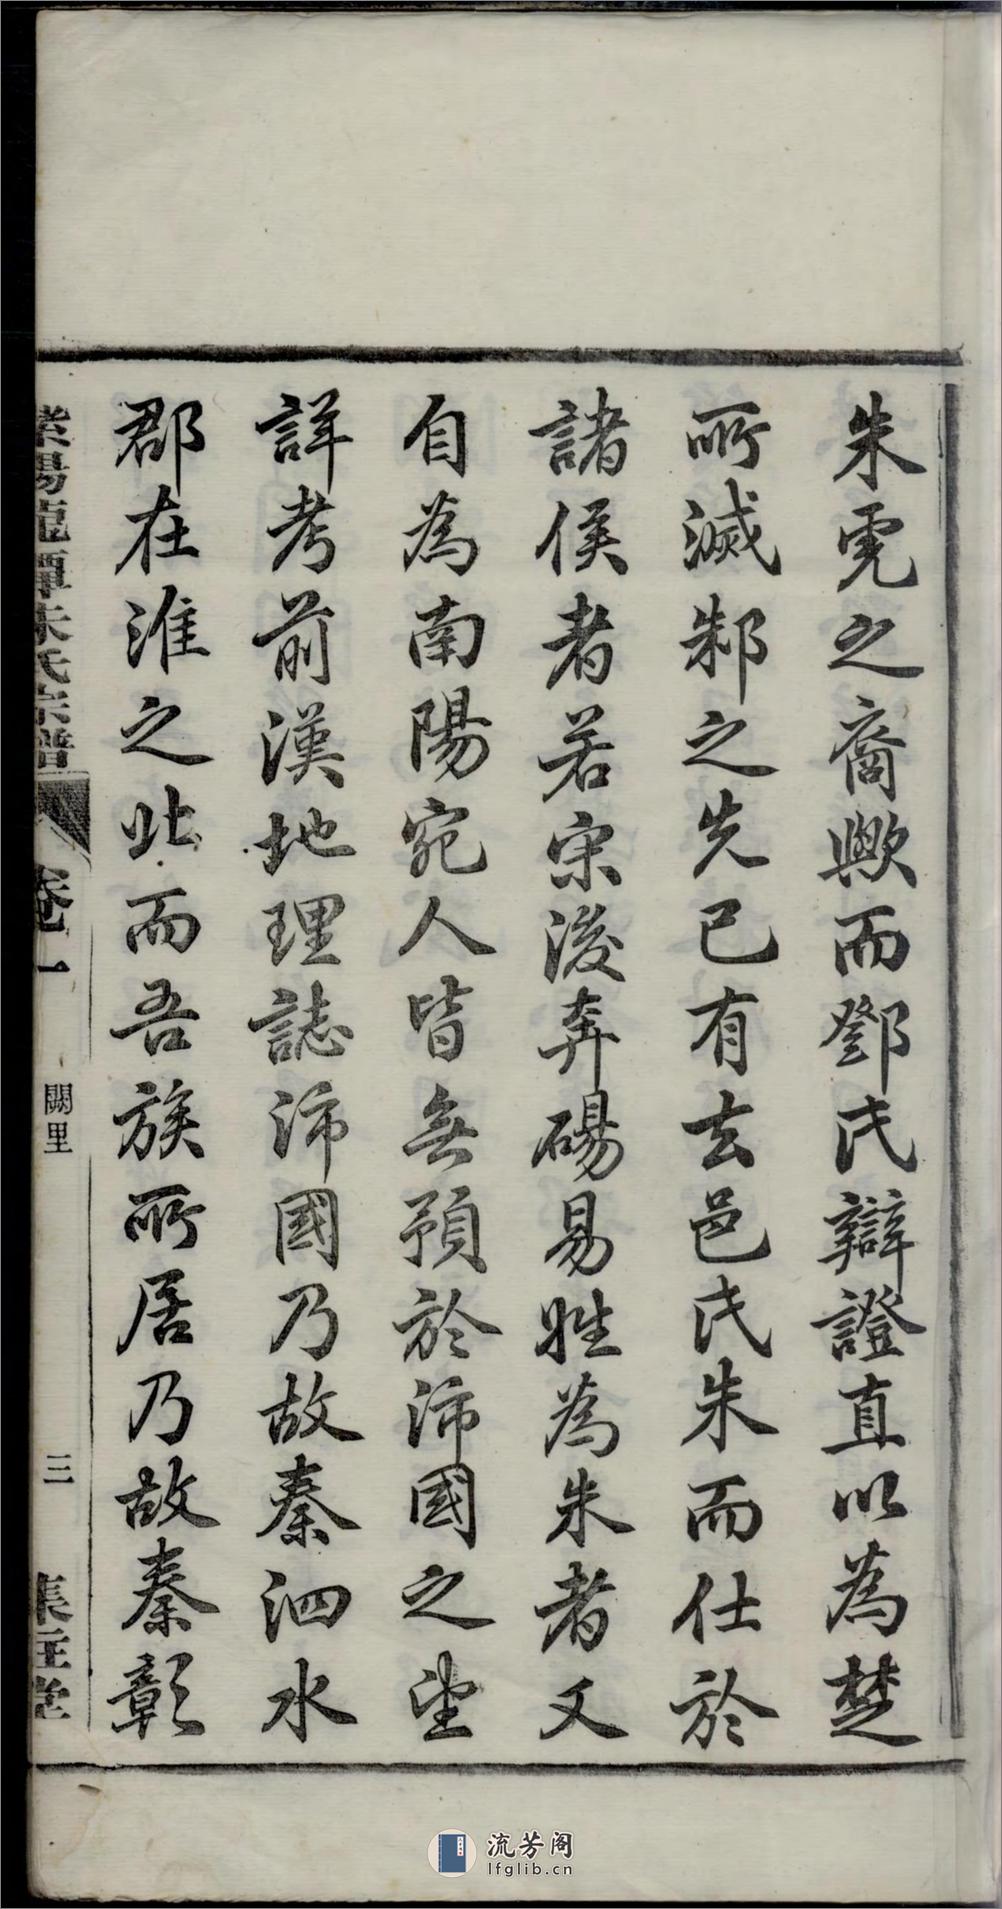 朱虎之裔歟而鄧氏辯證直以為楚
所滅邾之先已有去邑氏朱而仕於
諸侯者若宋後奔碭易姓為朱者又
自為南陽宛人皆無預於沛國之望
詳考前漢地理誌沛國乃故秦泗水
郡在淮之北而吾族所居乃故秦彰
紫陽龍潭朱氏宗譜 卷一 闕里 三 集注堂
流芳阁
lfglib.cn